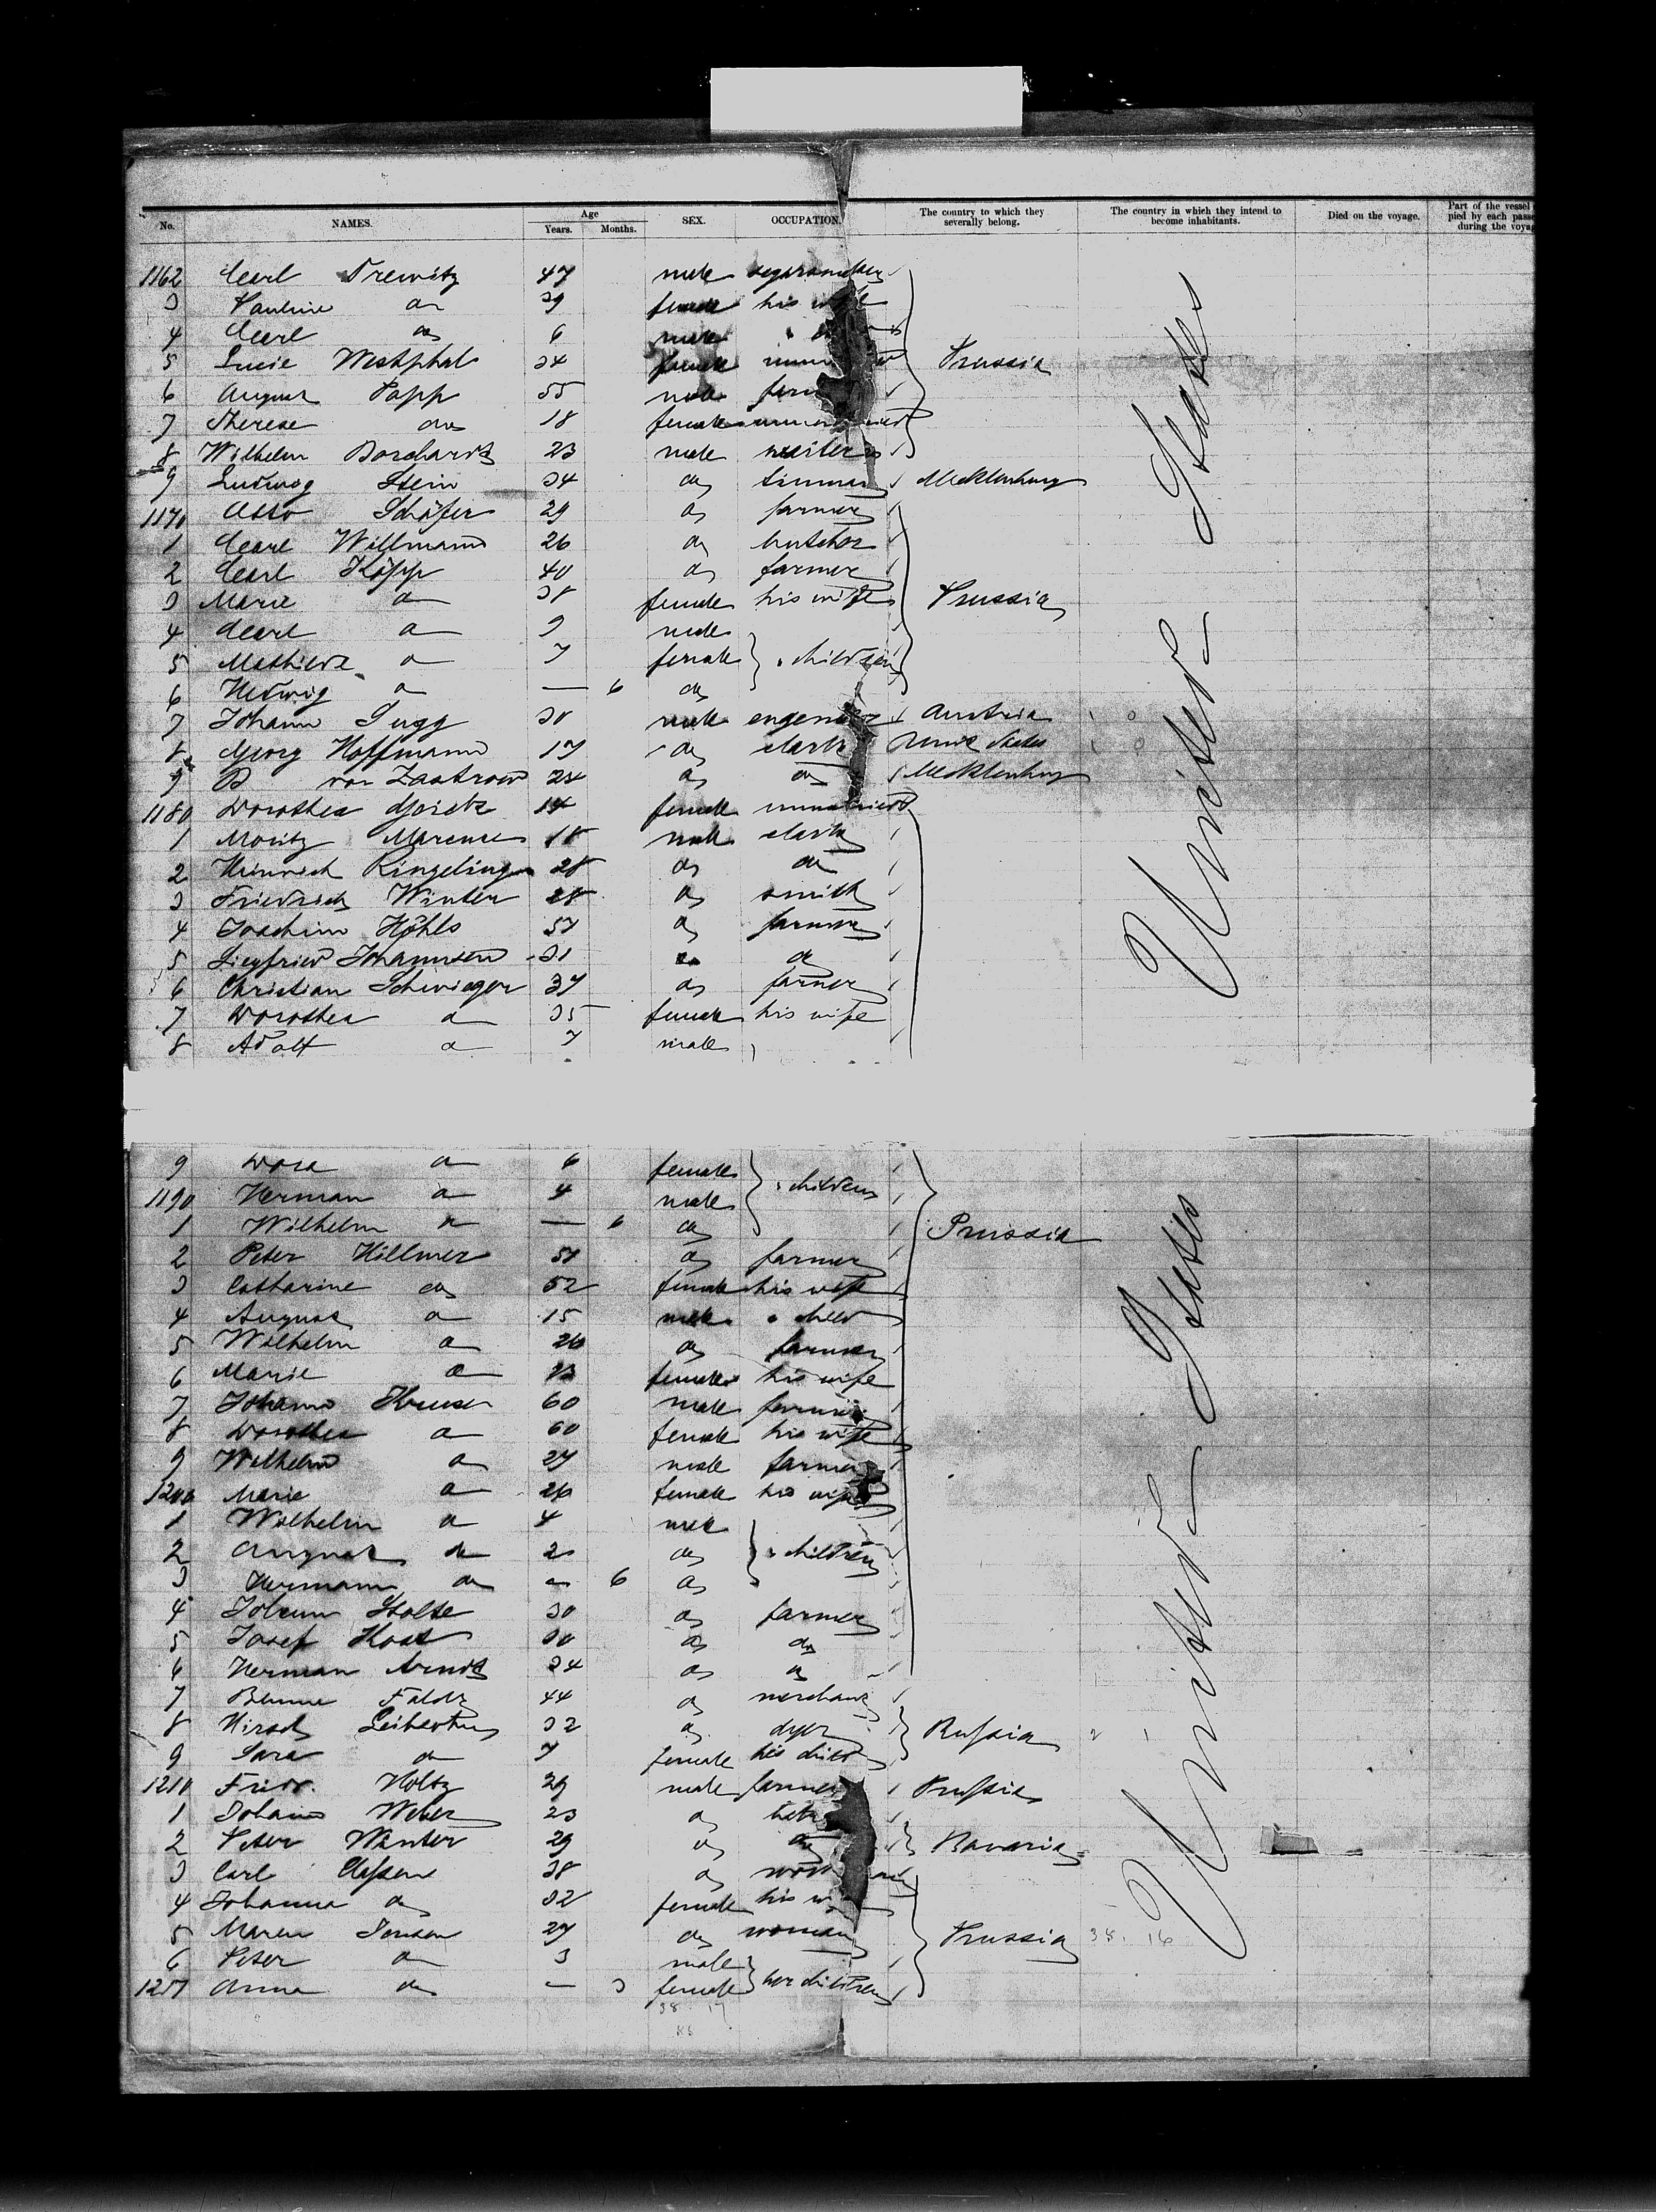 No. NAMES. Age Years. Months. SEX. OCCUPATION. The country to which they severally belong. The country in which they intend to become inhabitants. Died on the voyage. Part of the vessel pied by each passe during the voyag
1162 Carl Trewitz 47 male segarsmaker
3 Pauline do 39 female his wife
4 Carl do 6 male
5 Lucie Westphal 34 female Prussia
6 August Papp 55 male
7 Therese do 18 female
8 Wilhelm Borchardt 23 male
9 Ludwog Stein 34 do Mecklenburg
1170 Otto Schäfer 29 do farmer
1 Carl Willmann 26 do butcher
2 Carl Köpp 40 do farmer
3 Marie do 38 female his wife Prussia
4 Carl do 9 male
5 Mathilde do 7 female children
6 Hedwig do — 6 do
7 Johann Gugg 30 male Austria
8 Georg Hoffmann 17 do clark
9 B von Zastrow 24 do do Mecklenburg
1180 Dorothea 14 female unmarried
1 Moritz Marcuse 18 male clark
2 Heinrich Ringeling 28 do do
3 Friedrich Winter 28 do smith
4 Joachim Höhls 57 do farmer
5 Siegfried Johannsen 31 do do
6 Christian Schwieger 37 do farmer
7 Dorothea do 35 female his wife
8 Adolf do 7 male
United States
9 Dora do 6 female children
1190 Herman do 4 male
1 Wilhelm do — 6 do Prussia
2 Peter Hillmer 51 do farmer
3 Catharine do 52 female his wife
4 August do 15 male child
5 Wilhelm do 26 do farmer
6 Marie do 23 female his wife
7 Johann Kruse 60 male farmer
8 Dorothea do 60 female his wife
9 Wilhelm do 27 male farmer
1200 Marie do 26 female his wife
1 Wilhelm do 4 male
2 August do 2 do children
3 Hermann do — 6 do
4 Johann Stolte 30 do farmer
5 Josef Kost 30 do do
6 Herman Arndt 24 do do
7 44 do merchant
8 Hirsch 32 do dyer Russia
9 Sara do 7 female his child
1210 Friedr. Holtz 29 male farmer Prussia
1 Johann Weber 23 do
2 Peter Winter 29 do do Bavaria
3 Carl Classen 38 do
4 Johanna do 32 female his
5 Maren Jensen 27 do woman Prussia 38. 16
6 Peter do 3 male
1217 Anna do — 3 female her children
United States
38 17